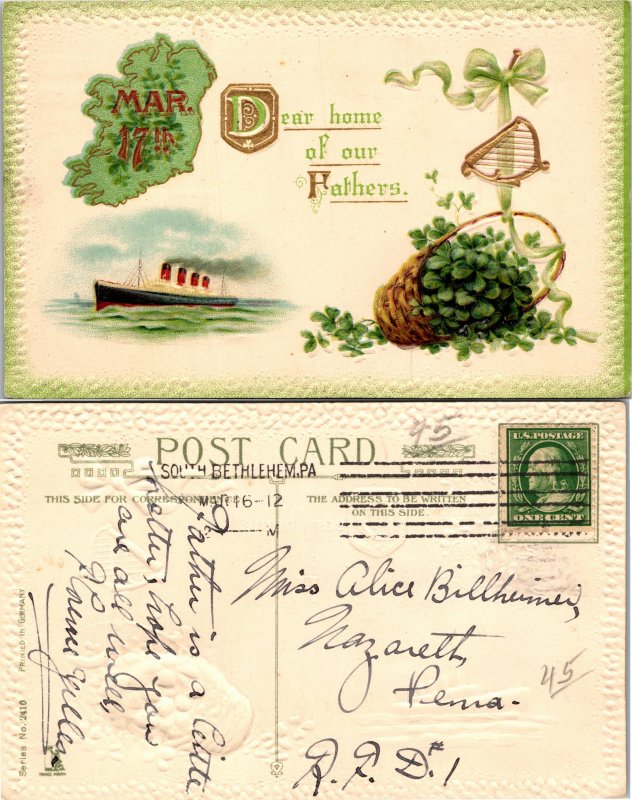 MAR.
17th
Dear home
of our
Fathers.
45
POST CARD
U.S. POSTAGE
ONE CENT
SOUTH BETHLEHEM, PA
THIS SIDE FOR CORRESPONDENCE
THE ADDRESS TO BE WRITTEN
ON THIS SIDE.
16-12
M
Father is a little
better, hope you
are all well,
Miss Alice Billheimer,
Nazareth,
Penna.
45
R. F. D. #1
Series No. 2410 PRINTED IN GERMANY
TRADE MARK